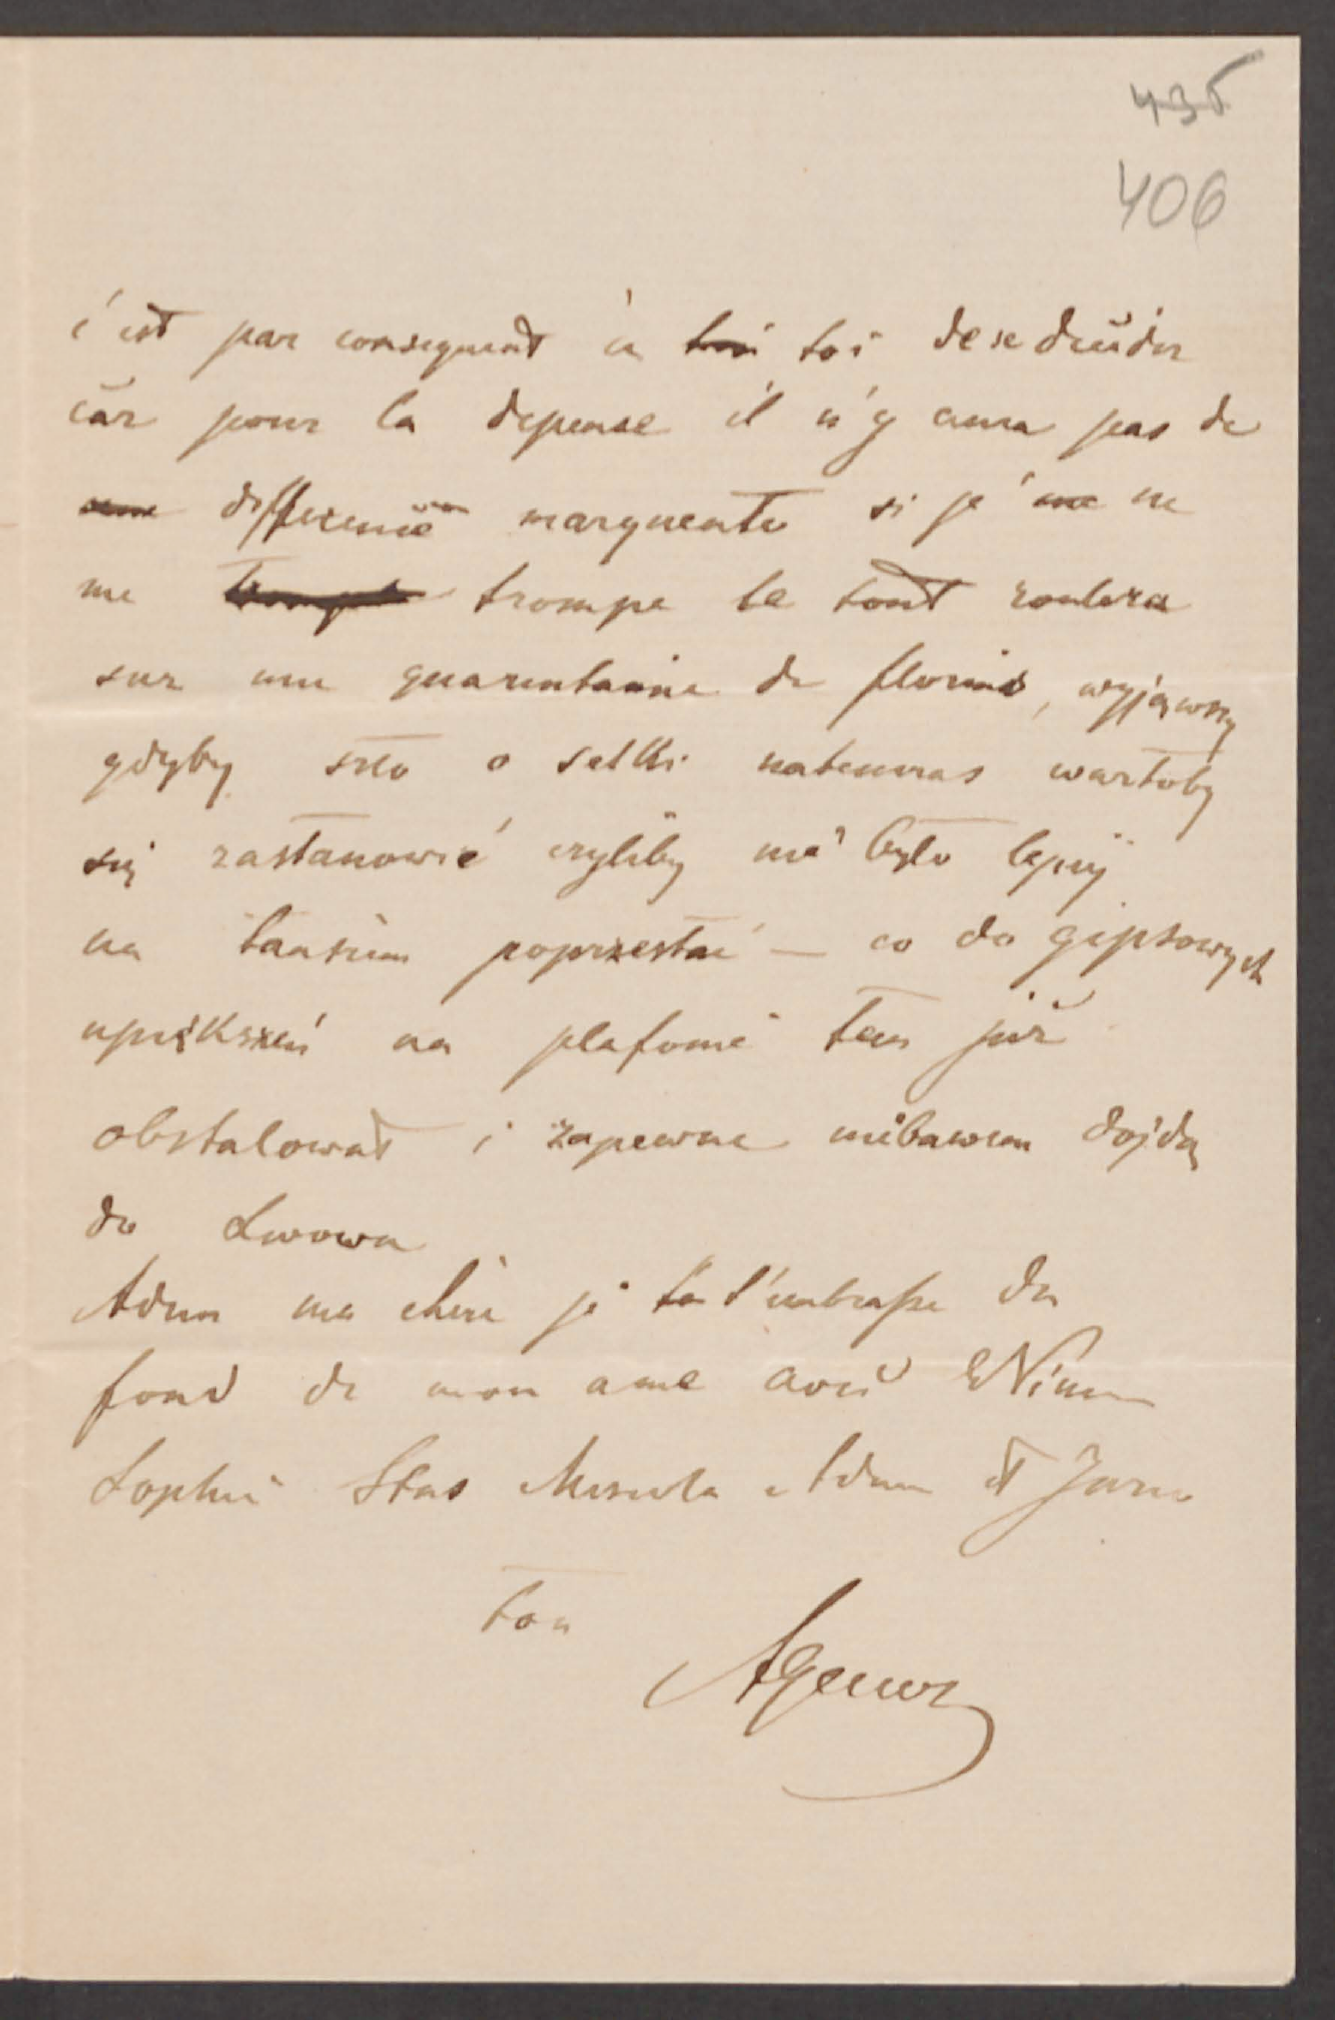 435
406
c'est par consequent à toi toi de se decider
car pour la depense il n'y aura pas de
une difference marquente si je me ne
me trompe trompe le tout roulera
sur une quarentaine de florins, wyjąwszy
gdyby szło o setki natenczas wartoby
się zastanowić czyliby nie było lepiej
na tańszem poprzestać — co do gipsowych
upiększeń na plafonie ten już
obstalował i zapewne niebawem dojdą
do Lwowa
Adieu ma chère je te t'embrasse du
fond de mon ame avec
Sophie Stas Adam et
ton
Agenor